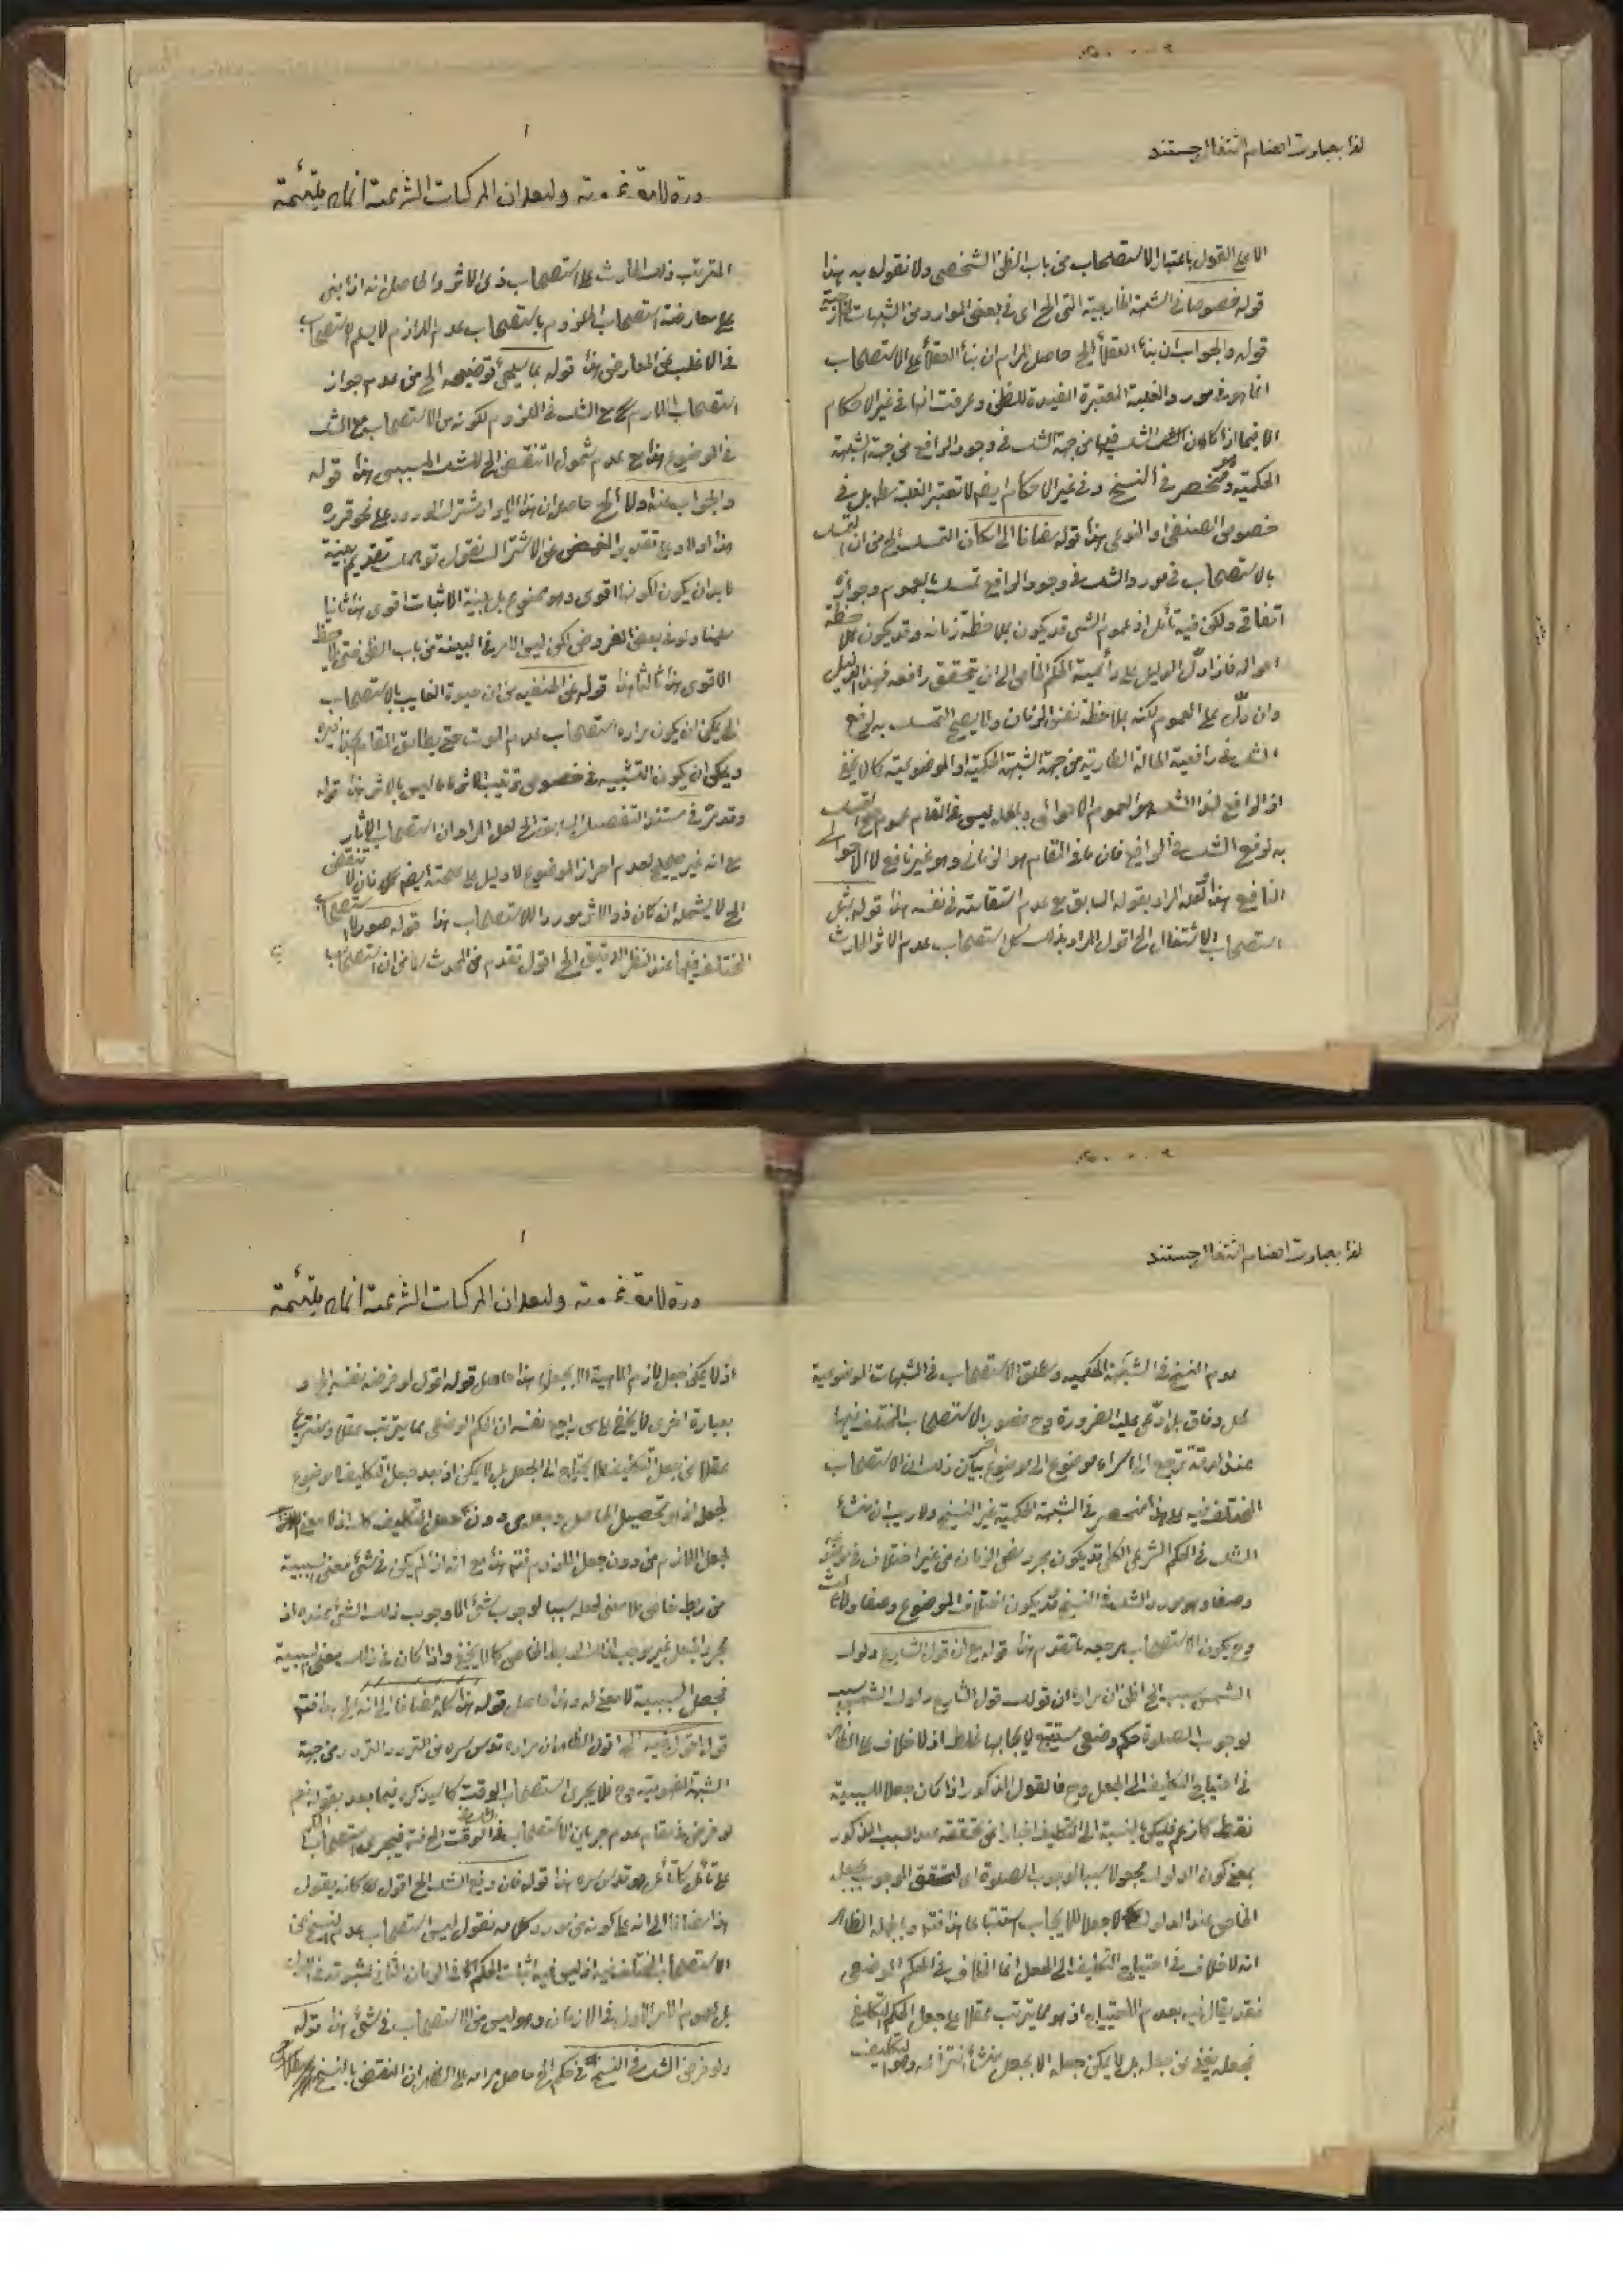 لغا بعبارت اهتمام اشتغال جستند
الا على القول باعتبار الاستصحاب من باب الظن الشخصي ولا نقول به هذا
قوله خصوصا في الشبهة الخارجية التي الخ اى في بعض الموارد من الشبهات الخارجية
قوله والجواب ان بناء العقلاء الخ حاصل المرام ان بناء العقلاء على الاستصحاب
انما هو في مورد الغلبة المعتبرة المفيدة للظن وعرفت انها في غير الاحكام
الا فيما اذا كان الشك فيها من جهة الشك في وجود الرافع من جهة الشبهة
الحكمية وهو منحصر في النسخ وفي غير الاحكام ايضا لا تعتبر الغلبة بل في
خصوص الصنفي او النوعي هذا قوله مضافا الى امكان التمسك الخ من ان التمسك
بالاستصحاب في مورد الشك في وجود الرافع تمسك بالعموم وجوازه
اتفاقي ولكن فيه تأمل اذ عموم الشي قد يكون بملاحظة زمانه وقد يكون بملاحظة
احواله فاذا دل الدليل على دائمية الحكم الخاص الى ان يتحقق رافعه فهذا الدليل
وان دل على العموم لكنه بملاحظة نفس الزمان ولا يصح التمسك به لرفع
الشك في رافعية الحالة الطارية من جهة الشبهة الحكمية او الموضوعية كما لا يخفى
اذ الرافع لهذا الشك هو العموم الاحوالي وبالجملة ليس في المقام عموم يصح التمسك
به لرفع الشك في الرافع فان ما في المقام هو الزماني وهو غير نافع لا الاحوالى
النافع هذا ولعله المراد بقوله السابق مع عدم استقامته في نفسه هذا قوله مثل
استصحاب الاشتغال الخ اقول المراد بذلك كل استصحاب عدم الاثر الحادث
وليعلم ان المركبات الشرعية انما ملتئمة
المترتب ذلك الحادث على استصحاب ذى الاثر والحاصل انه اذا بنى
على معارضة استصحاب الملزوم باستصحاب عدم اللازم لا يسلم الاستصحاب
في الاغلب عن المعارض هذا قوله بما سيجئ توضيحه الخ من عدم جواز
استصحاب اللازم مع الشك في الملزوم لكونه من الاستصحاب مع الشك
في الموضوع هذا مع عدم شمول لا تنقض الخ للشك المسببى هذا قوله
والجواب عنه اولا الخ حاصله ان هذا الايراد مشترك الورود على نحو قرره
هذا اولا وعلى تقدير الغمض عن الاشتراك نقول توهم تقديم بينة
لا بد ان يكون لكونها اقوى وهو ممنوع بل بينة الاثبات اقوى هذا ثانيا
سلمنا ولو في بعض الفروض لكن ليس الامر في البينة من باب الظن حتى يلاحظ
الاقوى هذا ثالثا هذا قوله عن الحنفيه من ان حيوة الغايب بالاستصحاب
الخ يمكن ان يكون مراده استصحاب عدم الموت حتى يطابق المقام
ويمكن ان يكون التشبيه في خصوص ترتيب الاثر هذا قوله
وقد مر في مستند التفصيل السابق الخ لعل المراد ان استصحاب الاثار
مع انه غير صحيح لعدم احراز الموضوع لا دليل على صحته ايضا فان لا تنقض
الخ لا يشمله ان كان ذو الاثر موردا للاستصحاب هذا قوله صور الاستصحاب
المختلف فيها عند النظر الدقيق الخ اقول تقدم من المحدث من ان استصحاب
لغا بعبارت اهتمام اشتغال جستند
عدم النسخ في الشبهة الحكمية ومطلق الاستصحاب في الشبهات الموضوعية
محل وفاق بل ادعى عليه الضرورة وح فصور الاستصحاب المختلف فيها
عند الدقة ترجع الى اسراء موضوع الى موضوع اخر بيان ذلك ان الاستصحاب
المختلف فيه على هذا منحصر في الشبهة الحكمية غير النسخ ولا ريب ان منشأ
الشك في الحكم الشرعي الكلي قد يكون مجرد مضى الزمان من غير اختلاف في موضوعه
وصفا وهو مورد الشك في النسخ وقد يكون اختلاف الموضوع وصفا
وح يكون الاستصحاب مرجعه ما تقدم هذا قوله مع ان قول الشارع دلوك
الشمس سبب الخ اظن ان مراده ان قولك قول الشارع دلوك الشمس سبب
لوجوب الصلوة حكم وضعي مستتبع لايجابها غلط اذ لا خلاف على الظاهر
في احتياج التكليف الى الجعل وح فالقول المذكور اذا كان جعلا للسببية
فقط كما زعم فليكن بالنسبة الى التكليف اخبارا عن تحققه عند السبب المذكور
بمعنى كون الدلوك مجعولا سببا لوجوب الصلوة اى لتحقق الوجوب بجعل
الخاص عند الدلوك لا جعلا للايجاب استتباعا هذا فتدبر وبالجملة الظاهر
انه لا خلاف في احتياج التكليف الى الجعل انما الخلاف في الحكم الوضعي
فقد يقال فيه بعدم الاحتياج اذ هو مما يترتب عقلا على جعل الحكم التكليفي
فجعله يغنى عن جعله بل لا يمكن جعله الا بجعل منشأ انتزاعه وهو التكليف
وليعلم ان المركبات الشرعية انما ملتئمة
اذ لا يمكن جعل لازم الماهية الا بجعلها هذا حاصل قوله اقول لو فرض نفسه الخ و
بعبارة اخرى لا يخفى على من راجع نفسه ان الحكم الوضعي مما يترتب عقلا وينتزع
عقلا من جعل التكليف فلا يحتاج الى الجعل بل لا يمكن اذ بعد جعل التكليف لا موضوع
لجعله اذ هو تحصيل الحاصل وبدون جعل التكليف كذلك اذ لا معنى
لجعل اللازم من دون جعل الملزوم فتدبر هذا مع انه اذا لم يكن في شئ معنى السببية
من ربط خاص فلا معنى لجعله سببا لوجوب شئ الا وجوب ذلك الشئ عنده اذ
مجرد الجعل غير موجب لذلك الربط الخاص كما لا يخفى واذا كان في ذلك معنى السببية
فجعل السببية لا معنى له وهذا حاصل قوله هذا كله مضافا الى انه الخ هذا فتدبر
قوله اقول فيه الخ اقول الظاهر ان مراده قدس سره من التردد التردد من جهة
الشبهة المفهومية وح فلا يجرى استصحاب الوقت كما سيذكره فيما بعد بقوله نعم
لو فرض في مقام عدم جريان الاستصحاب في الوقت الخ فيجرى استصحاب الحكم
على تأمل كما تأمل هو قدس سره هذا قوله فان رفع الشك الخ اقول كانه يقول
هذا مضافا الى انه على كونه من مورد كلامه نقول ليس استصحاب عدم النسخ من
الاستصحاب المختلف فيه اذ ليس فيه اثبات الحكم في الزمان الثاني لثبوته في الاول
بل لعموم الامر الاول في الازمان وهو ليس من الاستصحاب في شئ هذا قوله
ولو فرض الشك في النسخ في حكم الخ حاصل مرامه على الظاهر ان النقض بالنسخ